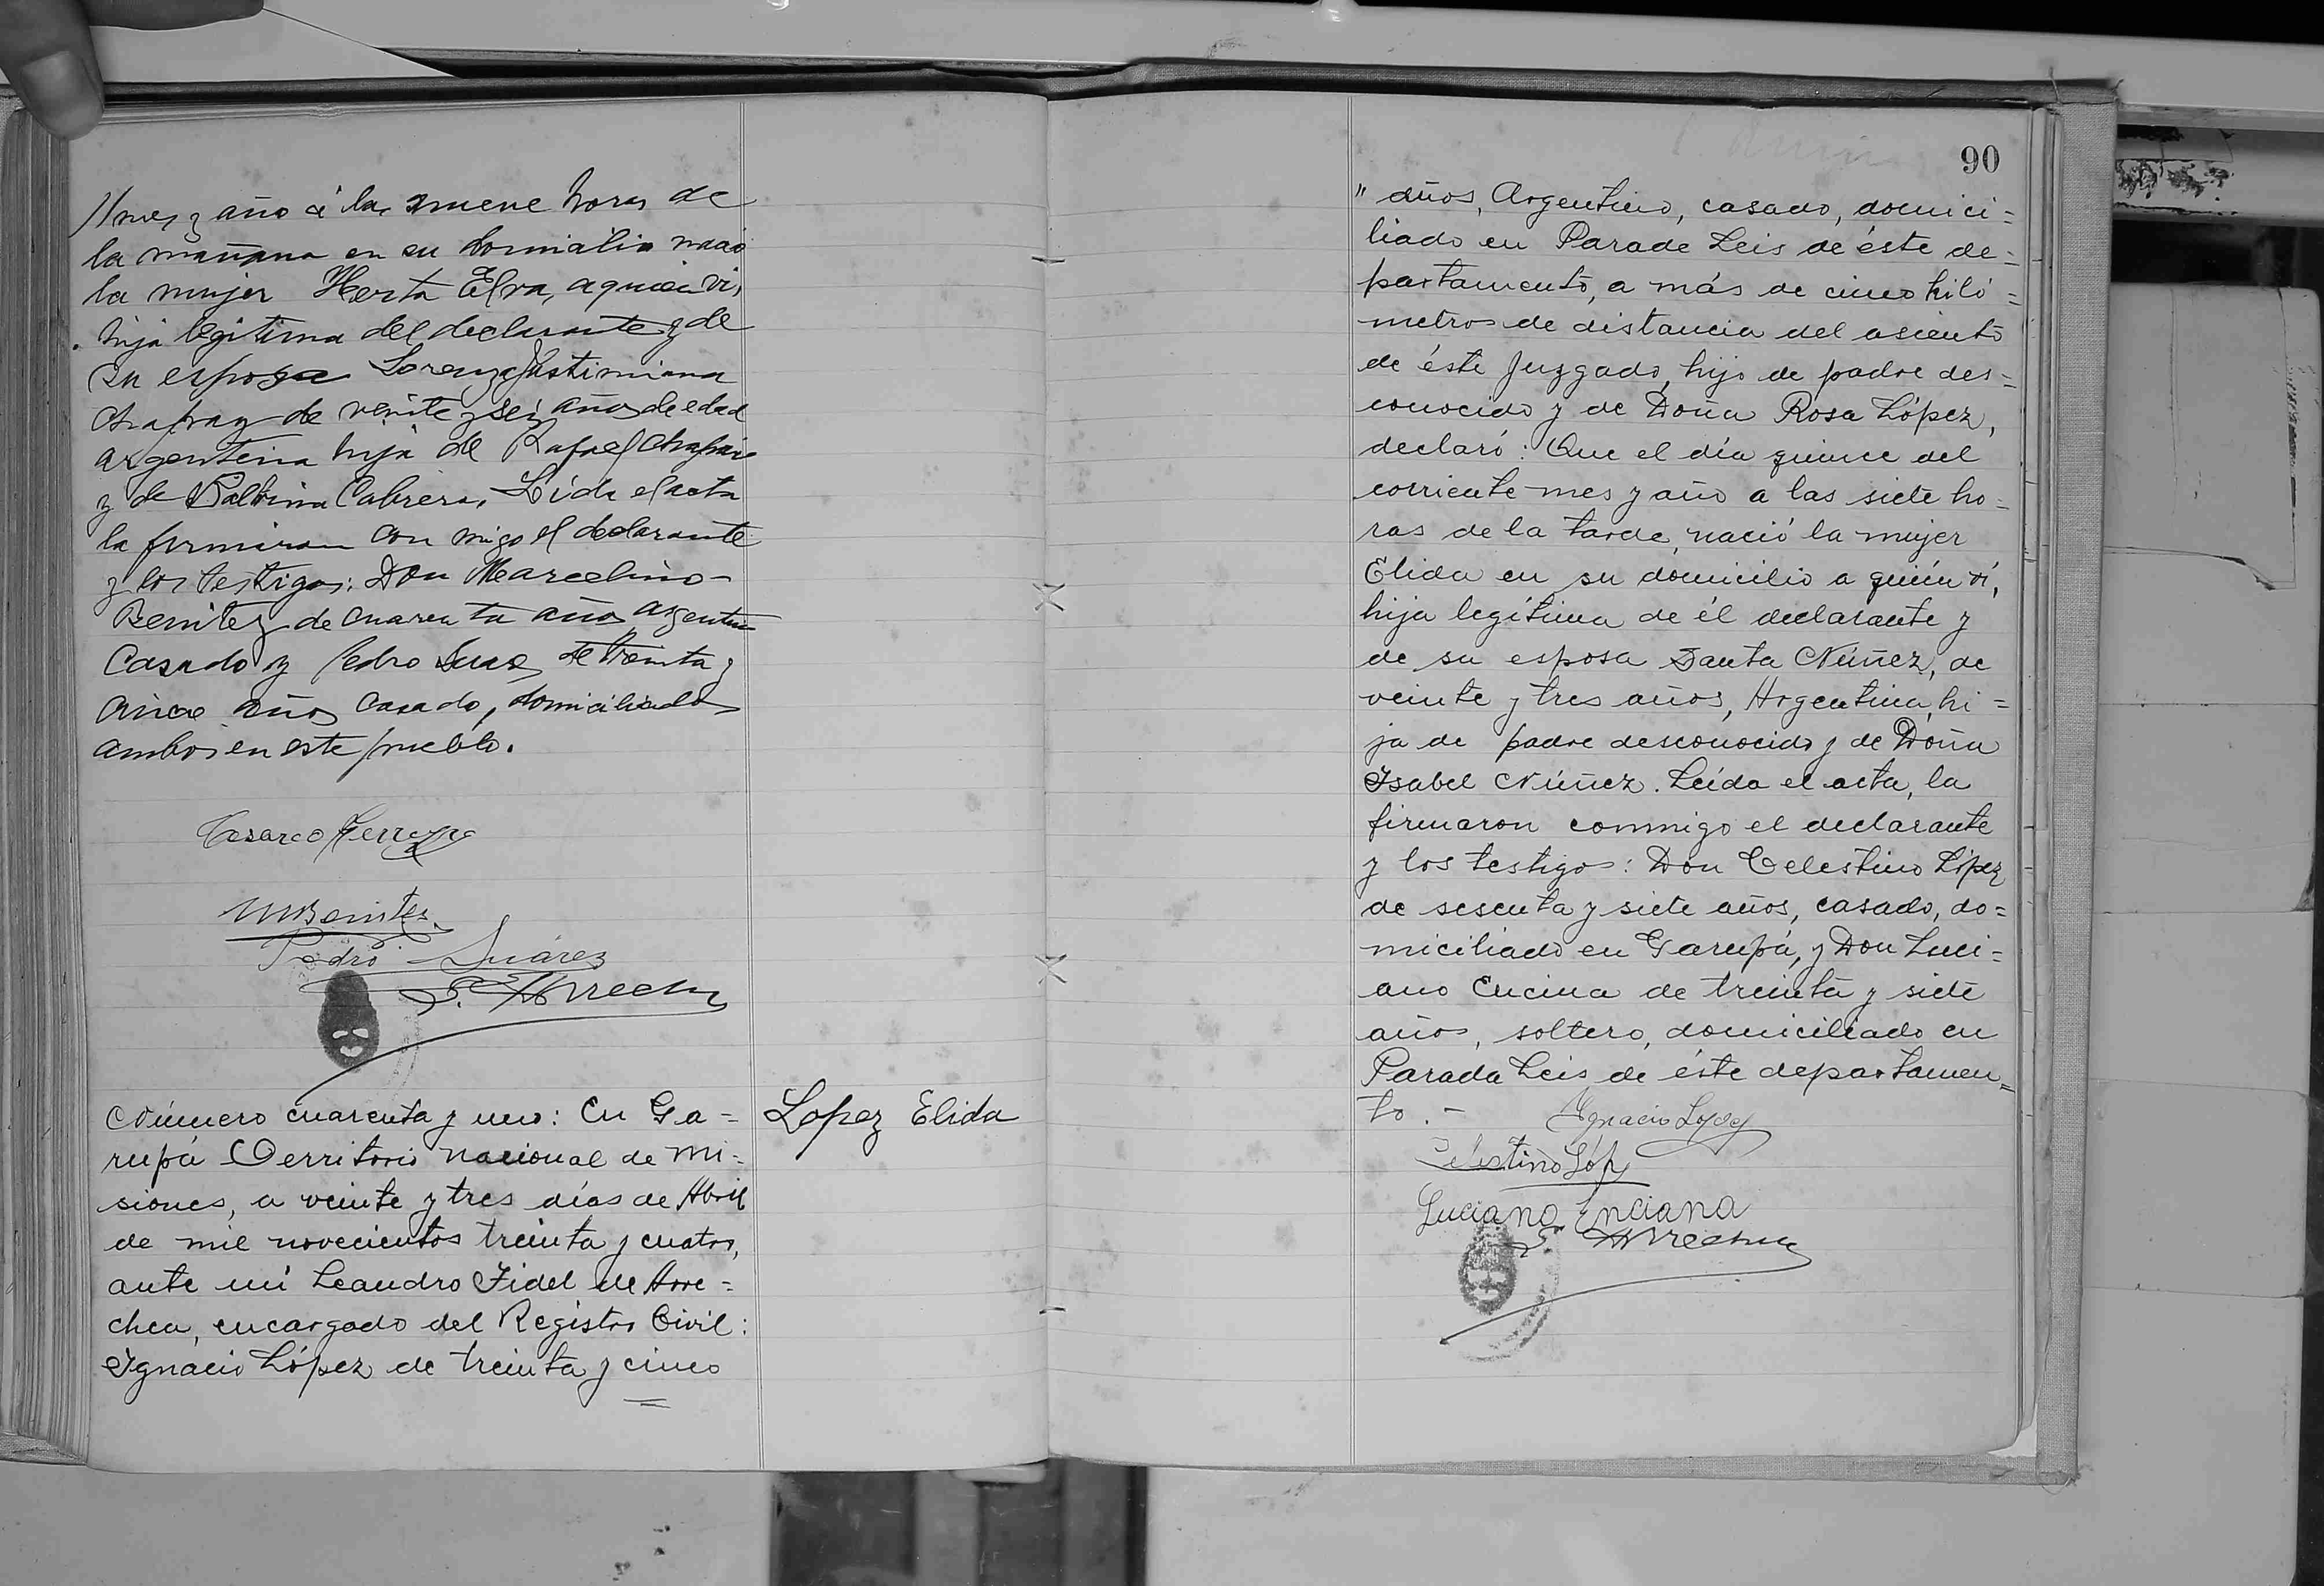 // mes y año a las nueve horas de
la mañana en su domicilio nació
la mujer Herta Elva, a quien vi,
hija legítima del declarante y de
su esposa Lorenza Justiniana
de veinte y seis años de edad
argentina hija de Rafael
y de Balbina Cabrera. Leida el acta
la firmaron con migo el declarante
y los testigos: Don Marcelino
Benitez de cuarenta años argentino
Casado y Pedro Suarez de treinta y
cinco años casado, domiciliados
ambos en este pueblo.
Cesareo Ferreyra
M Benitez
Pedro Suárez
L. F. Arrechea
Número cuarenta y uno: En Ga=
rupá Territorio nacional de Mi=
siones, a veinte y tres días de Abril
de mil novecientos treinta y cuatro,
ante mi Leandro Fidel de Arre=
chea, encargado del Registro Civil:
Ignacio López de treinta y cinco
=
Lopez Elida
90
" años, Argentino, casado, domici=
liado en Parade Leis de éste de=
partamento, a más de cinco kiló=
metros de distancia del asiento
de éste Juzgado, hijo de padre des=
conocido y de Doña Rosa López,
declaró: Que el día quince del
corriente mes y año a las siete ho=
ras de la tarde, nació la mujer
Elida en su domicilio a quién ví,
hija legítima de él declarante y
de su esposa Santa Núñez, de
veinte y tres años, Argentina, hi=
ja de padre desconocido y de Doña
Isabel Núñez. Leída el acta, la
firmaron conmigo el declarante
y los testigos: Don Celestino López
de sesenta y siete años, casado, do=
miciliado en Garupá, y Don Luci=
ano Encina de treinta y siete
años, soltero, domiciliado en
Parada Leis de éste departamen=
to.-
Ignacio Lopez
Celestino Lóp
Luciano Enciana
L. F. Arrechea